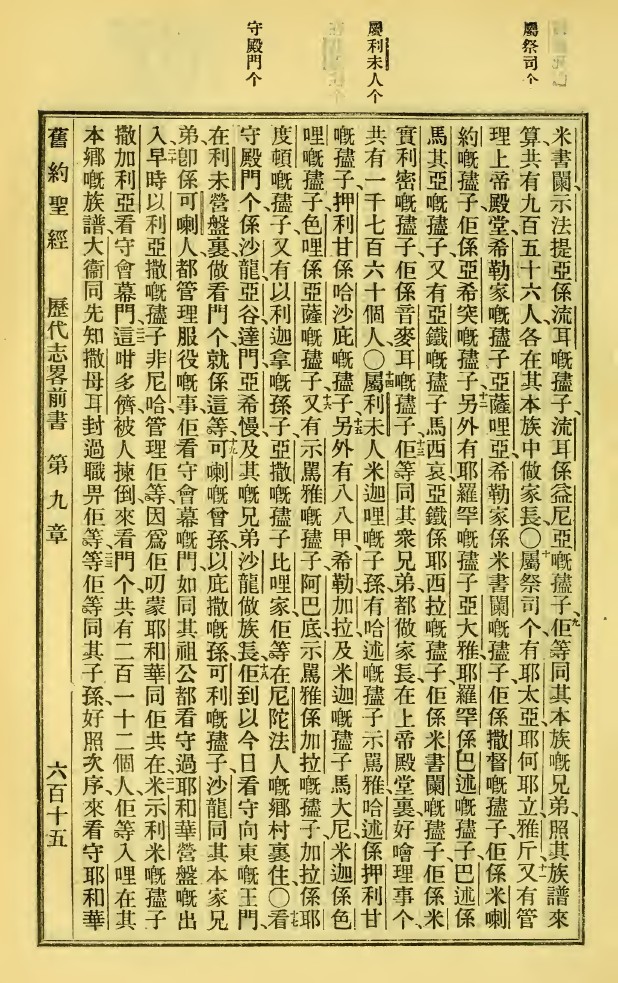 屬祭司个
屬利未人个
守殿門个
米書闌示法提亞係流耳嘅孻子流耳係益尼亞嘅孻子九佢等同其本族嘅兄弟照其族譜來
算共有九百五十六人各在其本族中做家長〇十屬祭司个有耶太亞耶何耶立雅斤十一又有管
理上帝殿堂希勒家嘅孻子亞薩哩亞希勒家係米書闌嘅孻子佢係撒督嘅孻子佢係米喇
約嘅孻子佢係亞希突嘅孻子十二另外有耶羅罕嘅孻子亞大雅耶羅罕係巴述嘅孻子巴述係
馬其亞嘅孻子又有亞鐵嘅孻子馬西哀亞鐵係耶西拉嘅孻子佢係米書闌嘅孻子佢係米
實利密嘅孻子佢係音麥耳嘅孻子十三佢等同其衆兄弟都做家長在上帝殿堂裏好噲理事个
共有一千七百六十個人〇十四屬利未人米迦哩嘅子孫有哈述嘅孻子示罵雅哈述係押利甘
嘅孻子押利甘係哈沙庇嘅孻子十五另外有八八甲希勒加拉及米迦嘅孻子馬大尼米迦係色
哩嘅孻子色哩係亞薩嘅孻子十六又有示罵雅嘅孻子阿巴底示罵雅係加拉嘅孻子加拉係耶
度頓嘅孻子又有以利迦拿嘅孫子亞撒嘅孻子比哩家佢等在尼陀法人嘅鄉村裏住〇十七看
守殿門个係沙龍亞谷達門亞希慢及其嘅兄弟沙龍做族長十八佢到以今日看守向東嘅王門
在利未營盤裏做看門个就係這等十九可喇嘅曾孫以庇撒嘅孫可利嘅孻子沙龍同其本家兄
弟卽係可喇人都管理服役嘅事佢看守會幕嘅門如同其祖公都看守過耶和華營盤嘅出
入二十早時以利亞撒嘅孻子非尼哈管理佢等因爲佢叨蒙耶和華同佢共在二一米示利米嘅孻子
撒加利亞看守會幕門二二這咁多儕被人揀倒來看門个共有二百一十二個人佢等入哩在其
本鄉嘅族譜大衞同先知撒母耳封過職畀佢等二三佢等同其子孫好照次序來看守耶和華
舊約聖經 歷代志畧前書 第九章 六百十五